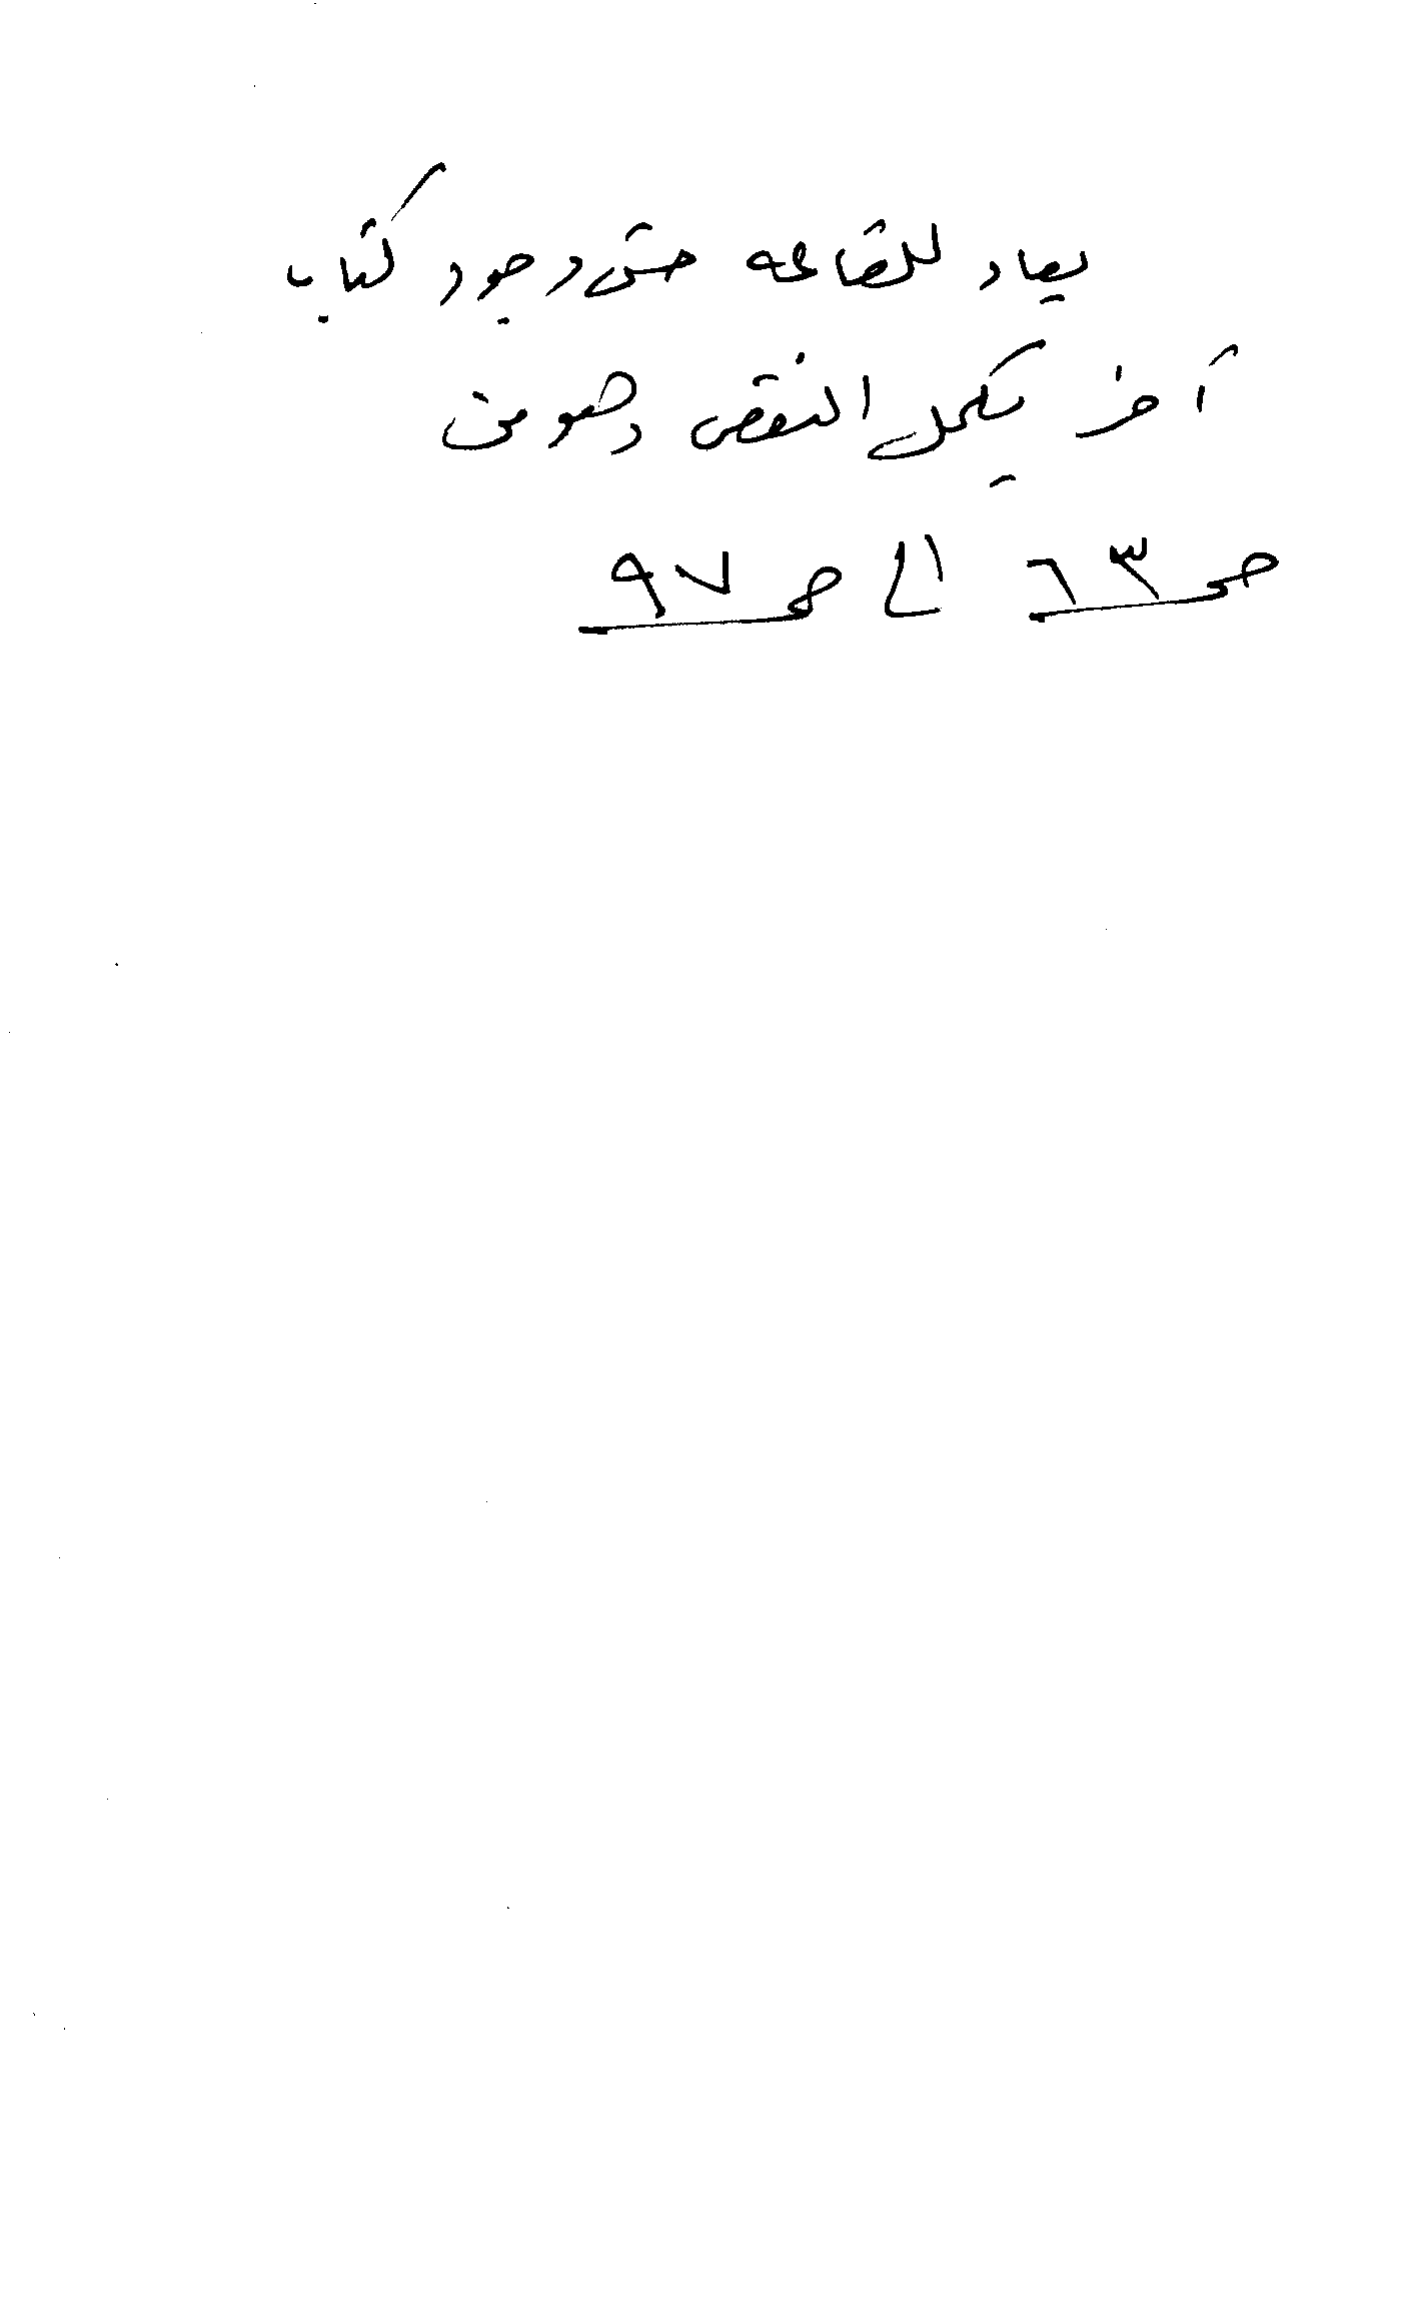 يعاد للقاعه حتى وجود كتاب
آخر يكمل النقص وهو من
صـ ٦٣ الى صـ ٩٧